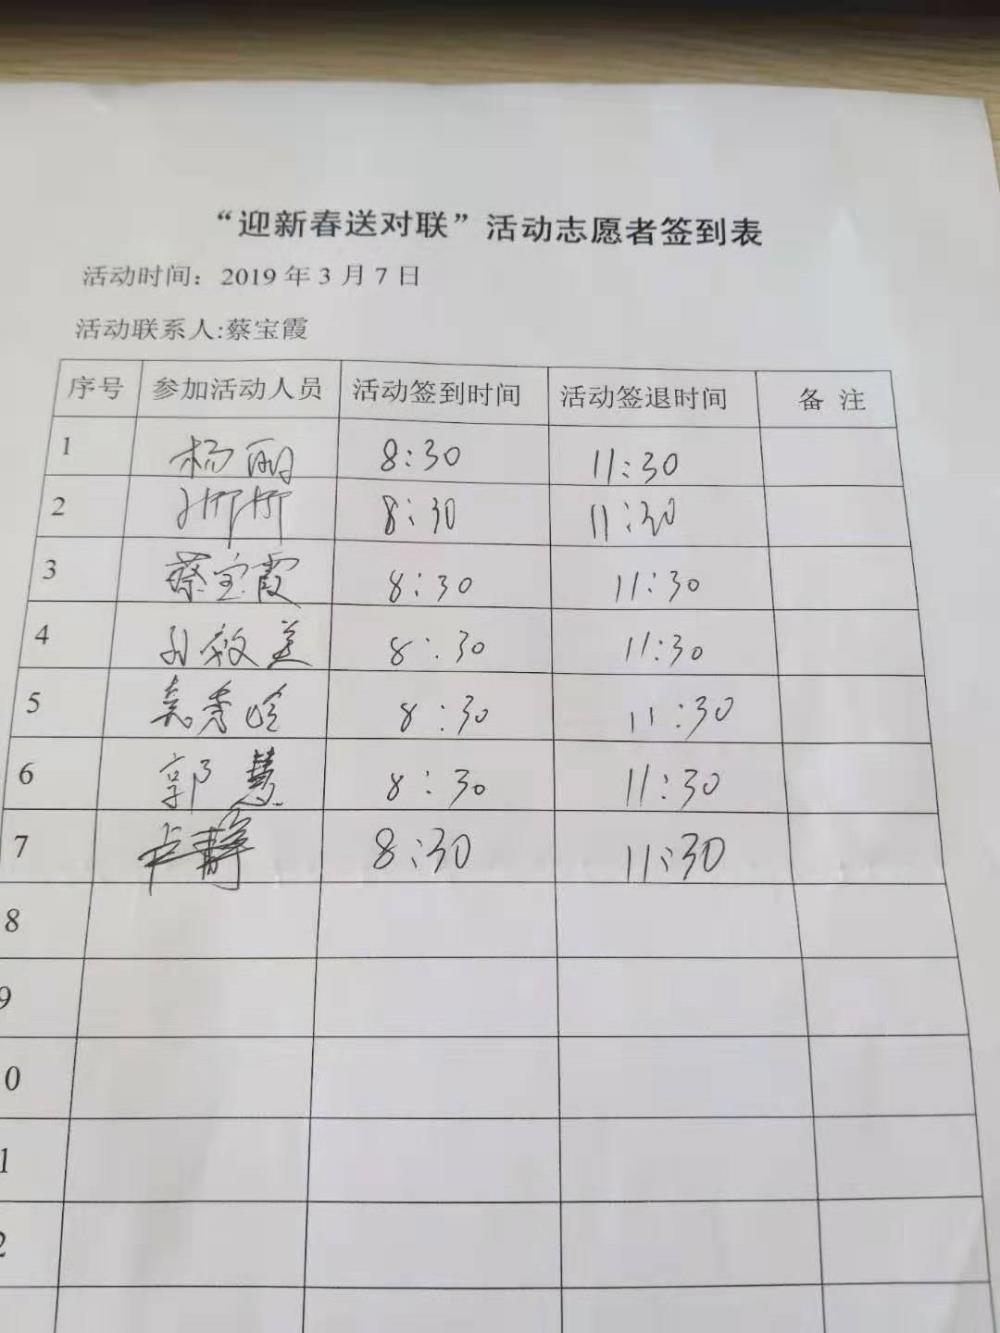 “迎新春送对联”活动志愿者签到表
活动时间：2019年3月7日
活动联系人:蔡宝霞
序号 参加活动人员 活动签到时间 活动签退时间 备 注
1 杨丽 8:30 11:30
2 8:30 11:30
3 蔡宝霞 8:30 11:30
4 孙敏美 8:30 11:30
5 8:30 11:30
6 郭慧 8:30 11:30
7 卢静 8:30 11:30
8
9
0
1
2